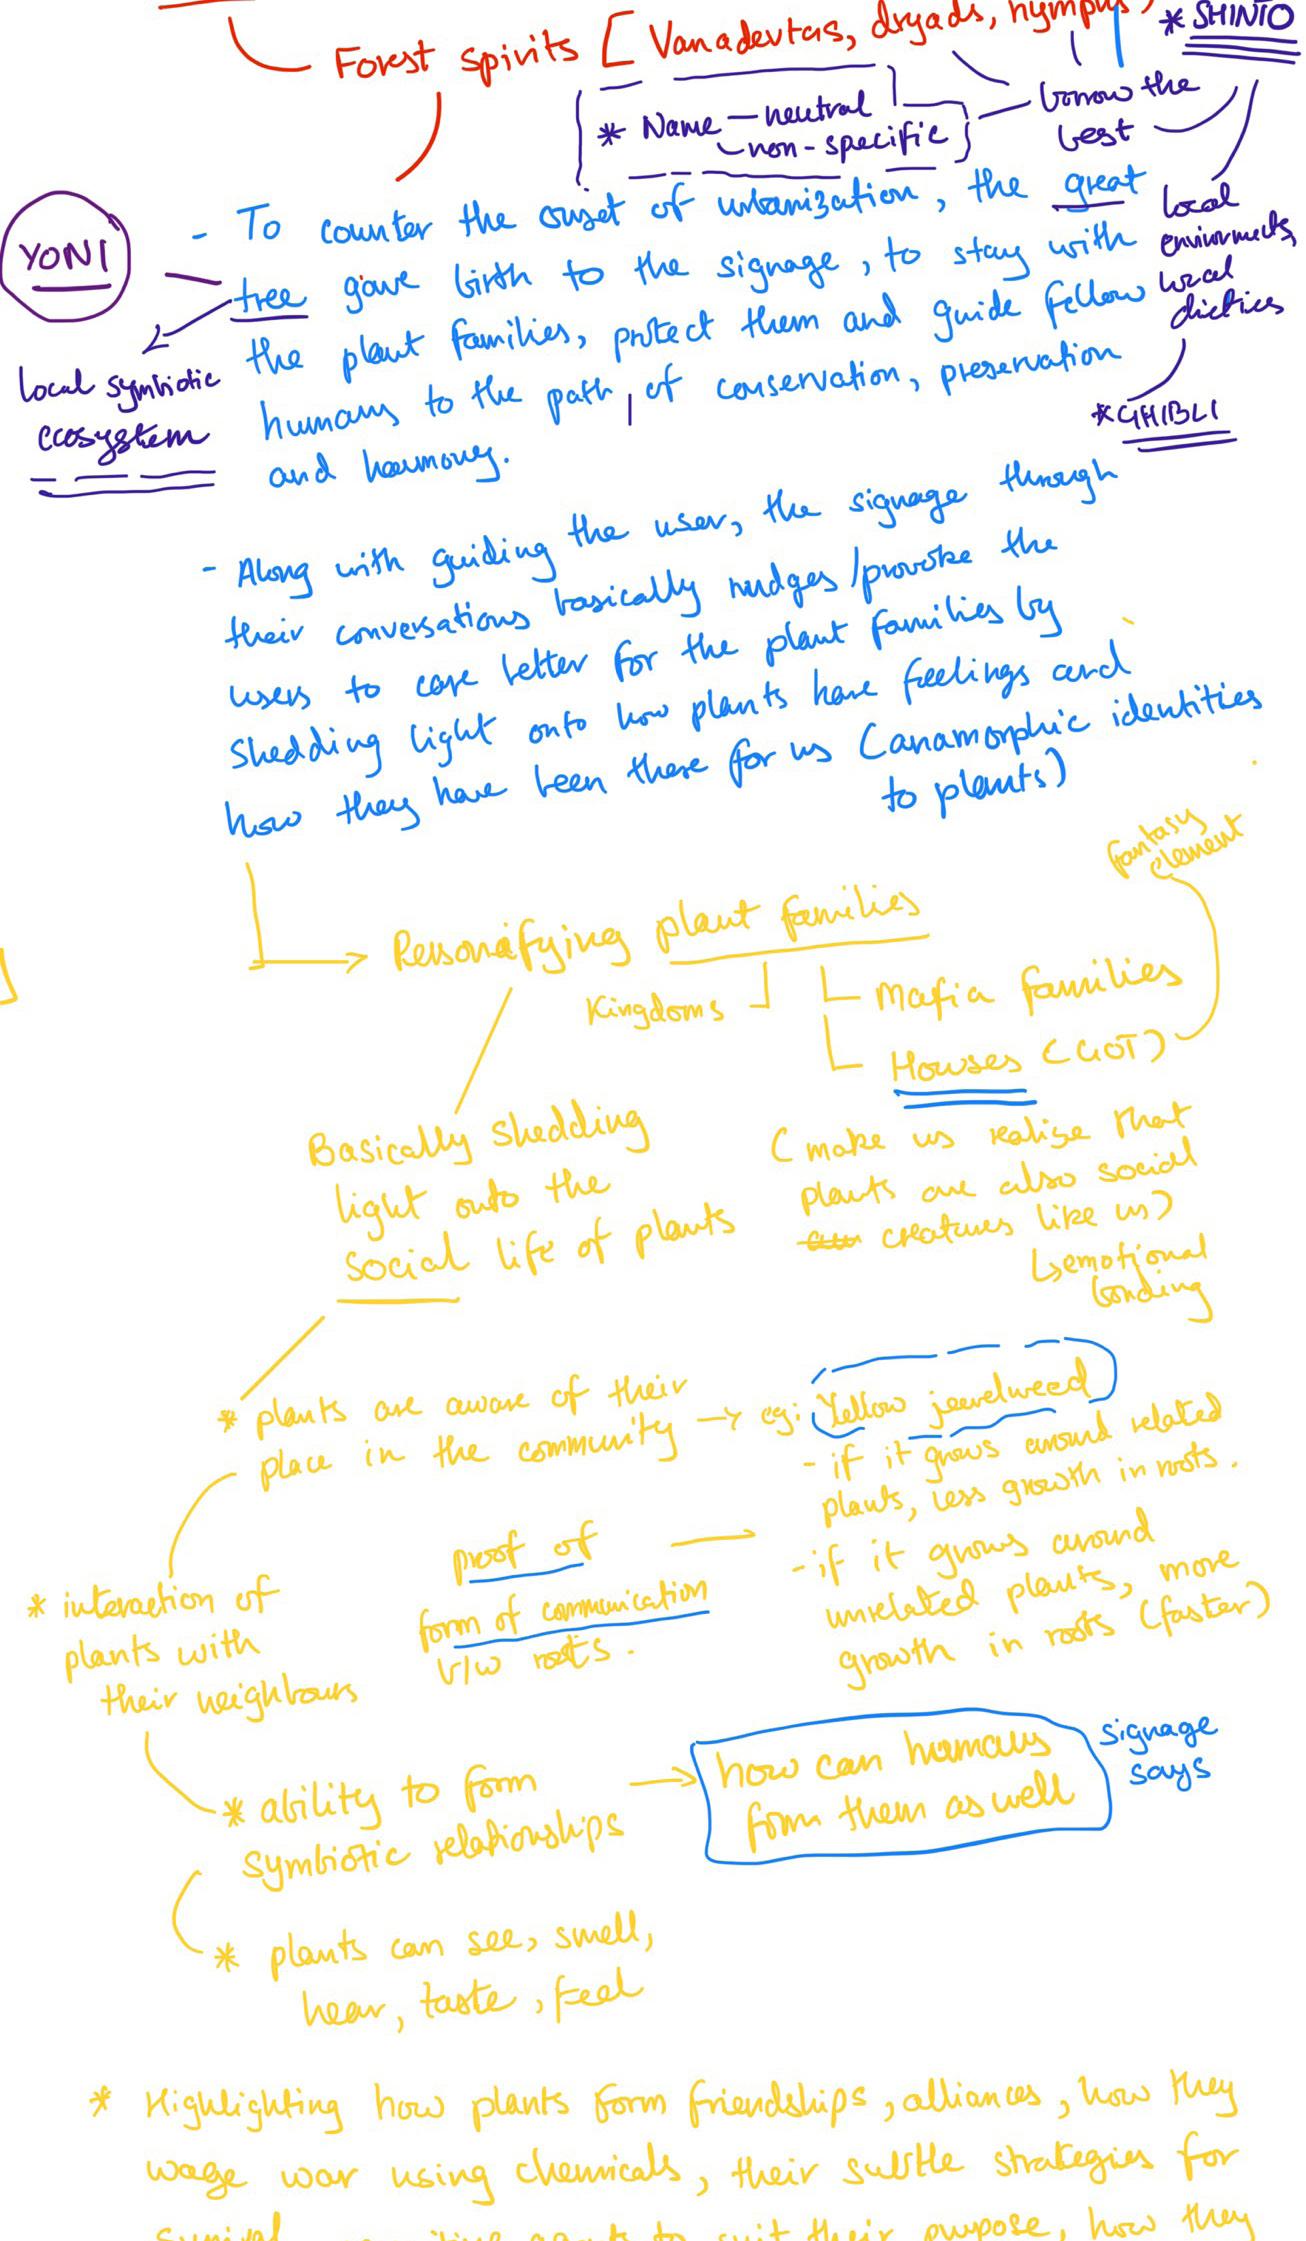 * SHINTO
Forest spirits [Vanadevtas, dryads, nymphs
* Name – neutral
– non-specific
borrow the
best
local
environments,
local
dieties
* GHIBLI
YONI
local symbiotic
ecosystem
- To counter the onset of urbanization, the great
tree gave birth to the signage, to stay with
the plant families, protect them and guide fellow
humans to the path, of conservation, preservation
and harmony.
- Along with guiding the user, the signage through
their conversations basically nudges/provoke the
users to care better for the plant families by
shedding light onto how plants have feelings and
how they have been there for us (anamorphic identities
to plants)
fantasy
element
Personifying plant families
Kingdoms
Mafia families
Houses (GOT)
Basically shedding
light onto the
social life of plants
(make us realise that
plants are also social
creatures like us)
↳ emotional
bonding
* plants are aware of their
place in the community → eg: Yellow jewelweed
- if it grows around related
plants, less growth in roots.
- if it grows around
unrelated plants, more
growth in roots (faster)
proof of
form of communication
b/w roots.
* interaction of
plants with
their neighbours
* ability to form
symbiotic relationships
how can humans
form them as well
signage
says
* plants can see, smell,
hear, taste, feel
* Highlighting how plants form friendships, alliances, how they
wage war using chemicals, their subtle strategies for
survival to suit their purpose, how they